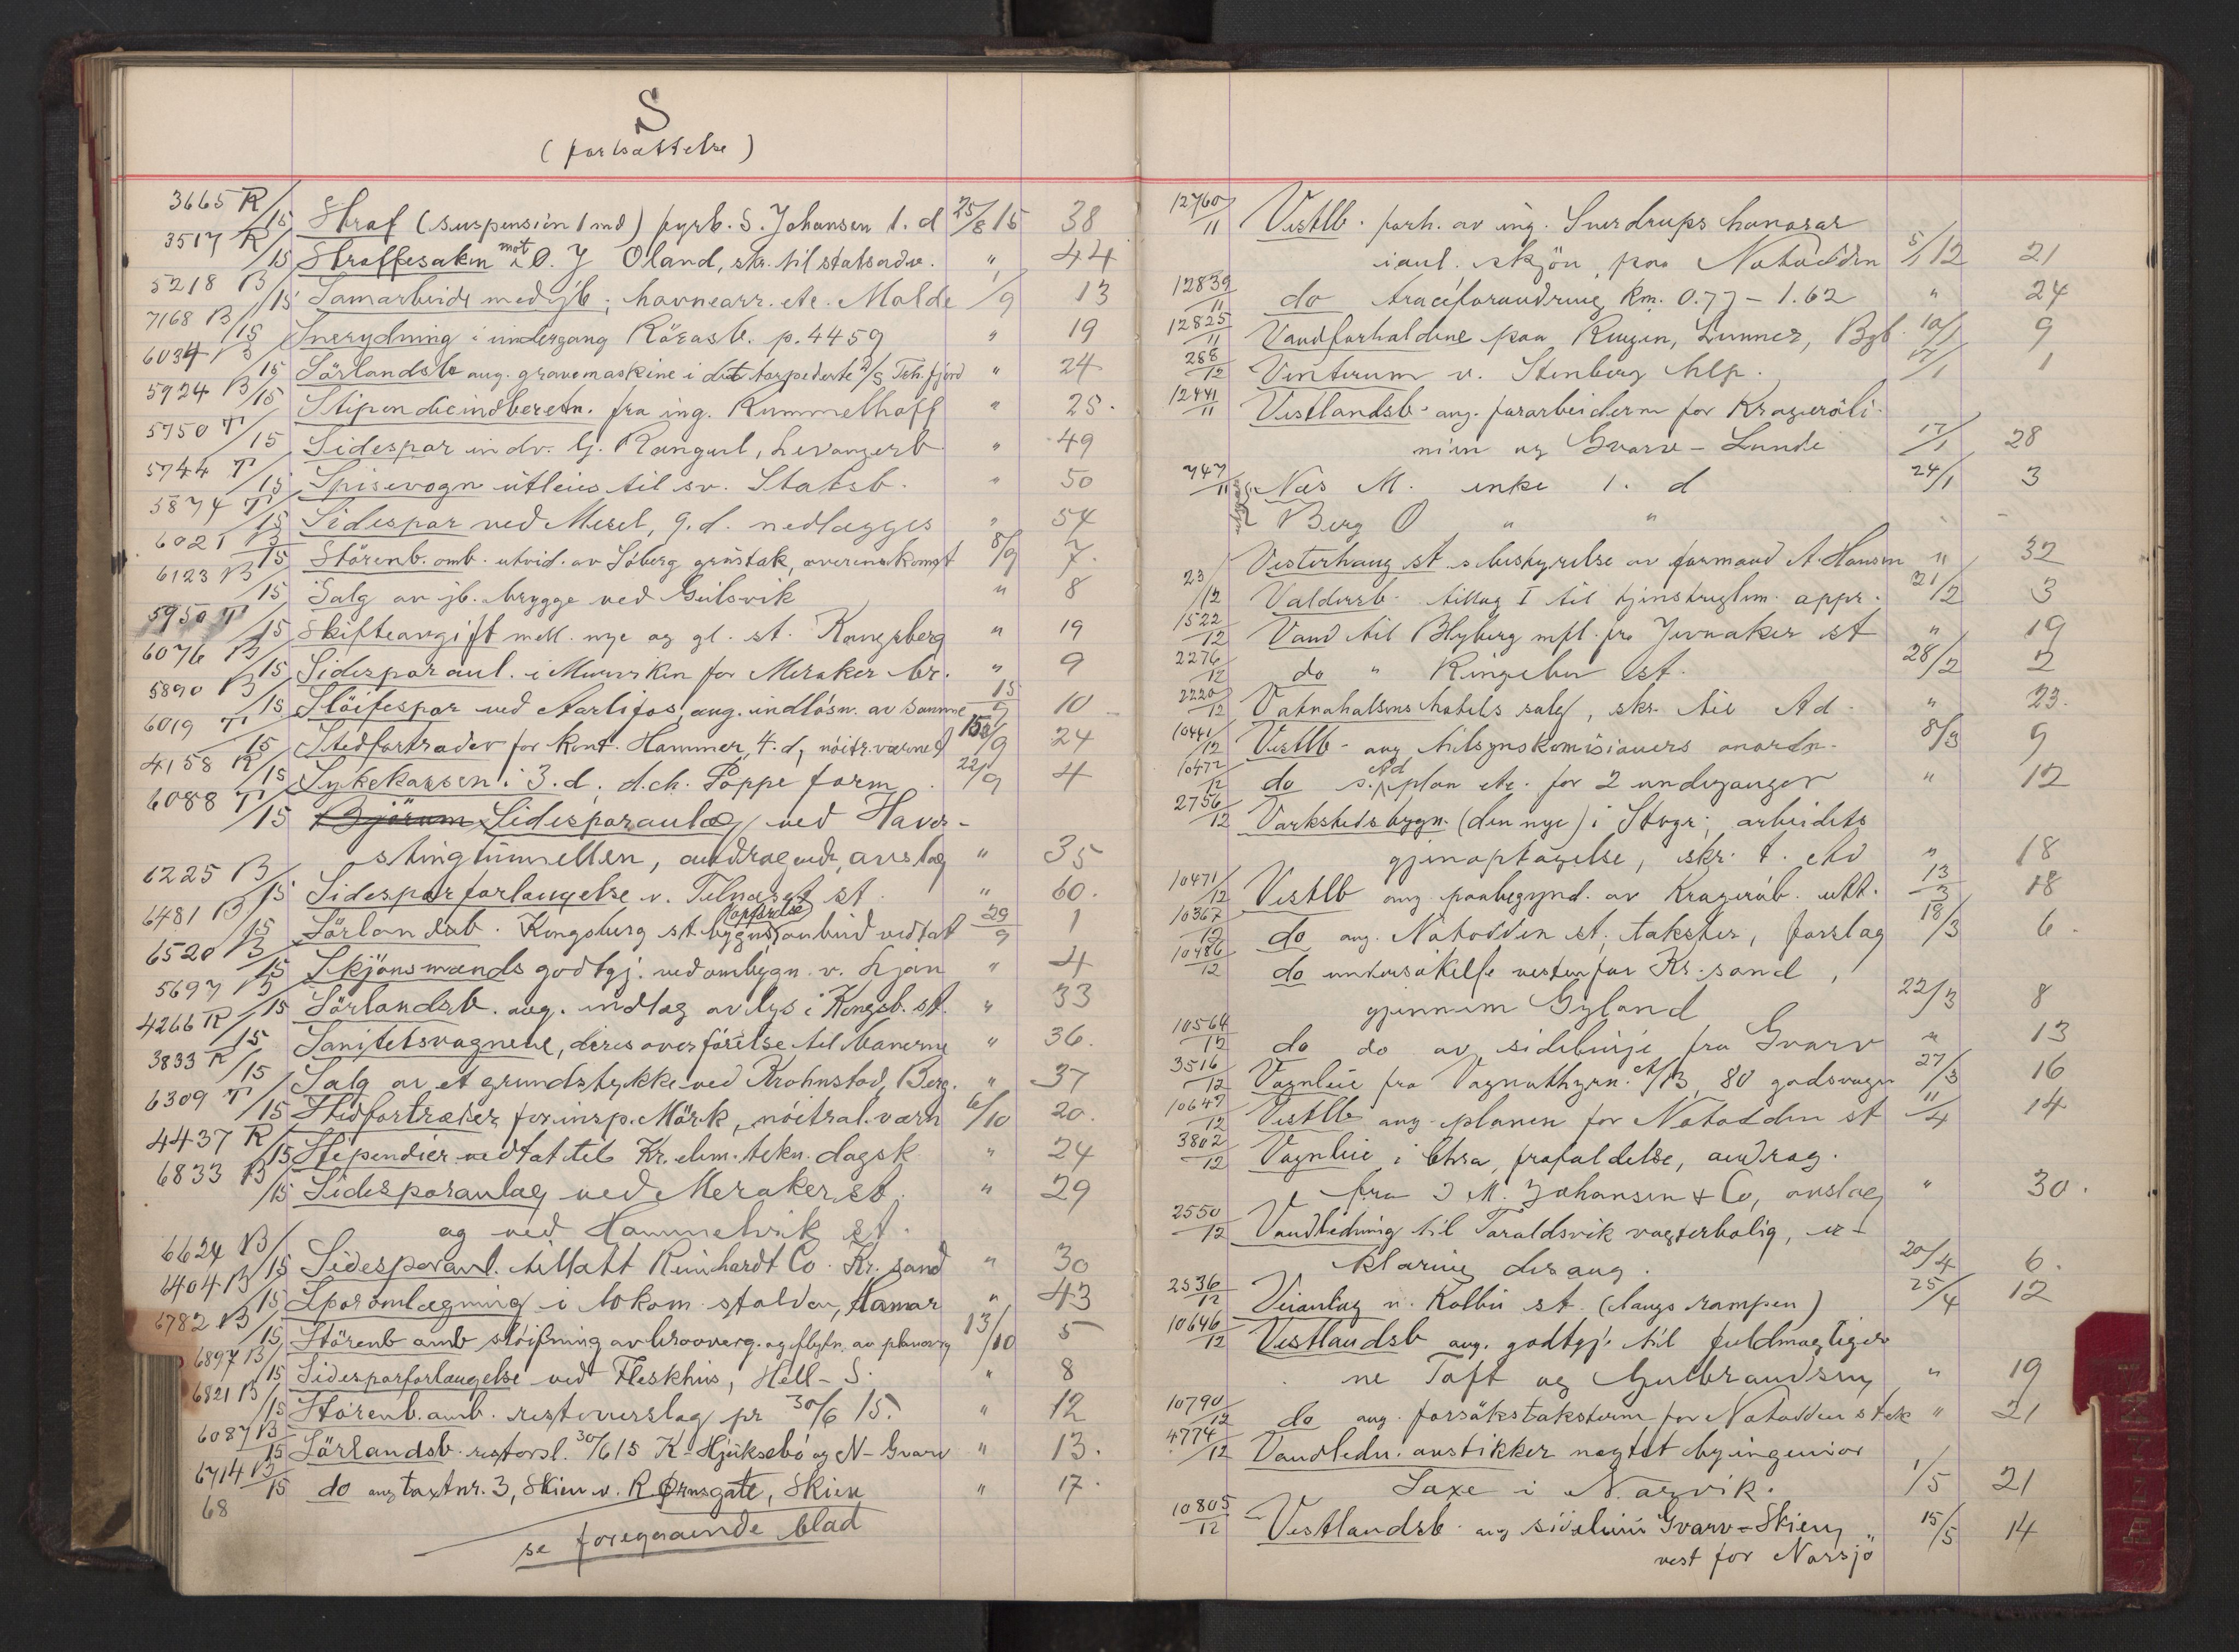 S
(fortsættelse)
3665 R/15 Straf (suspension 1 md) fyrb. S. Johansen 1. d 25/8 15 38
3517 R/15 Straffesaken mot O. J Oland, skr. til statsadv. " 44
5218 B/15 Samarbeide med jb; havnearr. etc. Molde 1/9 13
7168 B/15 Snerydning i undergang Rörosb. p. 4459 " 19
6034 B/15 Sörlandsb ang. gravemaskine i det torpederte fjord " 24
5924 B/15 Stipendieindberetn. fra ing. Rummelhoff " 25.
5750 T/15 Sidespor indv. G. Ranguel, Levangerb " 49
5744 T/15 Spisevogn utleies til sv. Statsb. " 50
5874 T/15 Sidespor ved Mesel, 9. d. nedlægges " 54
6021 B/15 Störenb. omb. utvid. av Söberg grustak, overenskomst 8/9 7.
6123 B/15 Salg av jb. brygge ved Gulsvik " 8
5950 T/15 Skifteavgift mell. nye og gl. st. Kongsberg " 19
6076 B/15 Sidesporanl. i Muruviken for Meraker br. " 9
5890 B/15 Slöifespor ved Aarlifos, ang. indlösn. av samme 15/9 10
6019 T/15 Stedfortræder for kont. Hammer, 4. d, nöitr. værned 15/9 24
4158 R/15 Sykekassen i 3. d. d.ch. Poppe form. 22/9 4
6088 T/15 Björum Sidesporanlæg ved Haver-
stingtunnellen, andragende, avslag " 35
6225 B/15 Sidesporforlængelse v. Telneset st " 60.
6481 B/15 Sörlandsb. Kongsberg st. bygns opförelse anbud vedtat 29/9 1
6520 B/15 Skjönsmænds godtgj. ved ombygn. v. Ljan " 4
5697 B/15 Sörlandsb. ang. indlæg av lys i Kongsb. st. " 33
4266 R/15 Sanitetsvognene, deres overförelse til banerne " 36.
3833 R/15 Salg av et grundstykke ved Krohnstad, Berg. " 37
6309 T/15 Stedfortræder for insp. Mörk, nöitral. værn 6/10 20.
4437 R/15 Stipendier vedtat til Kr. elem. tekn. dagsk " 24
6833 B/15 Sidesporanlæg ved Meraker st. " 29
og ved Hommelvik st.
6624 B/15 Sidesporanl. tillatt Reinhardt Co. Kr. sand " 30
6404 B/15 Sporomlægning i lokom. stalden, Hamar " 43
6782 B/15 Störenb omb slöifning av brooverg. og flytn. av planoverg 13/10 5
6897 B/15 Sidesporforlængelse ved Fleskhus, Hell-S. " 8
6821 B/15 Störenb. omb. restoverslag pr 30/6 15. " 12
6087 B/15 Sörlandsb. restovsl. 30/6 15 K-Hjuksebö og N-Gvarv " 13.
6714 B/15 do ang taxtnr. 3, Skien v. R. Ørnsgate, Skien " 17.
68
se foregaaende blad
12760/11 Vestlb. forh. av ing. Sverdrups honorar
i anl. skjön, paa Notodden 5/1 12 21
12839/11 do traceforandring km. 0.77 - 1.62 " 24
12825/11 Vandforholdene paa Rougen, Lunner, Bgb. 10/1 9
288/12 Venterum v. Stenberg hlp. 17/1 1
12441/11 Vestlandsb. ang. forarbeiderne for Kragerölin-
ien og Gvarv - Lunde 17/1 28
747/11 Næs M. enke 1. d 24/1 3
Berg O " " " -
23/12 Vesterhaug st. s bestyrelse av formand A. Hansen " 32
Valdersb. tillæg I til tjenstreglem. appr. 21/2 3
1522/12 Vand til Blyberg mfl. fra Jevnaker st " 19
2276/12 do " Ringebu st. 28/2 2
2220/12 Vatnahalsens hotels salg, skr. til Ad. " 23.
10441/12 Vestlb - ang tilsynskomisioners anordn. 8/3 9
10472/12 do s. Ad plan etc. for 2 underganger " 12
2756/12 Værkstedsbygn. (den nye) i Stvgr; arbeidets
gjenoptagelse, skr. t. Ad " 18
10471/12 Vestlb ang paabegynd. av Kragerøb. utt. 13/3 18
10367/12 do ang. Notodden st. takster, forslag 18/3 6.
10486/12 do undersökelse vestenfor Kr. sand,
gjennem Gyland 22/3 8
10564/12 do do av sidelinje fra Gvarv " 13
3516/12 Vognleie fra Vognuthyrn. 80 godsvogne 27/3 16
10647/12 Vestlb ang. planen for Notodden st 11/4 14
3802/12 Vognleie i Chra, frafaldelse, andrag.
fra J M. Johansen & Co, avslag " 30.
2550/12 Vandledning til Taraldsvik vogterbolig, er-
klæring desang. 20/4 6.
2536/12 Veianlæg v. Kolbu st. (langs rampen) 25/4 12
10646/12 Vestlandsb ang. godtgj. til fuldmægtiger-
ne Toft og Gulbrandsen " 19
10790/12 do ang. forsökstaksterne for Notodden st. " 21
4774/12 Vandledn. anstikker negtet byingeniör
Saxe i Narvik. 1/5 21
10805/12 Vestlandsb. ang sidelinie Gvarv - Skien,
vest for Norsjö 15/5 14